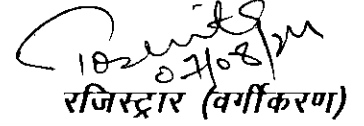 07/08/24
रजिस्ट्रार (वर्गीकरण)